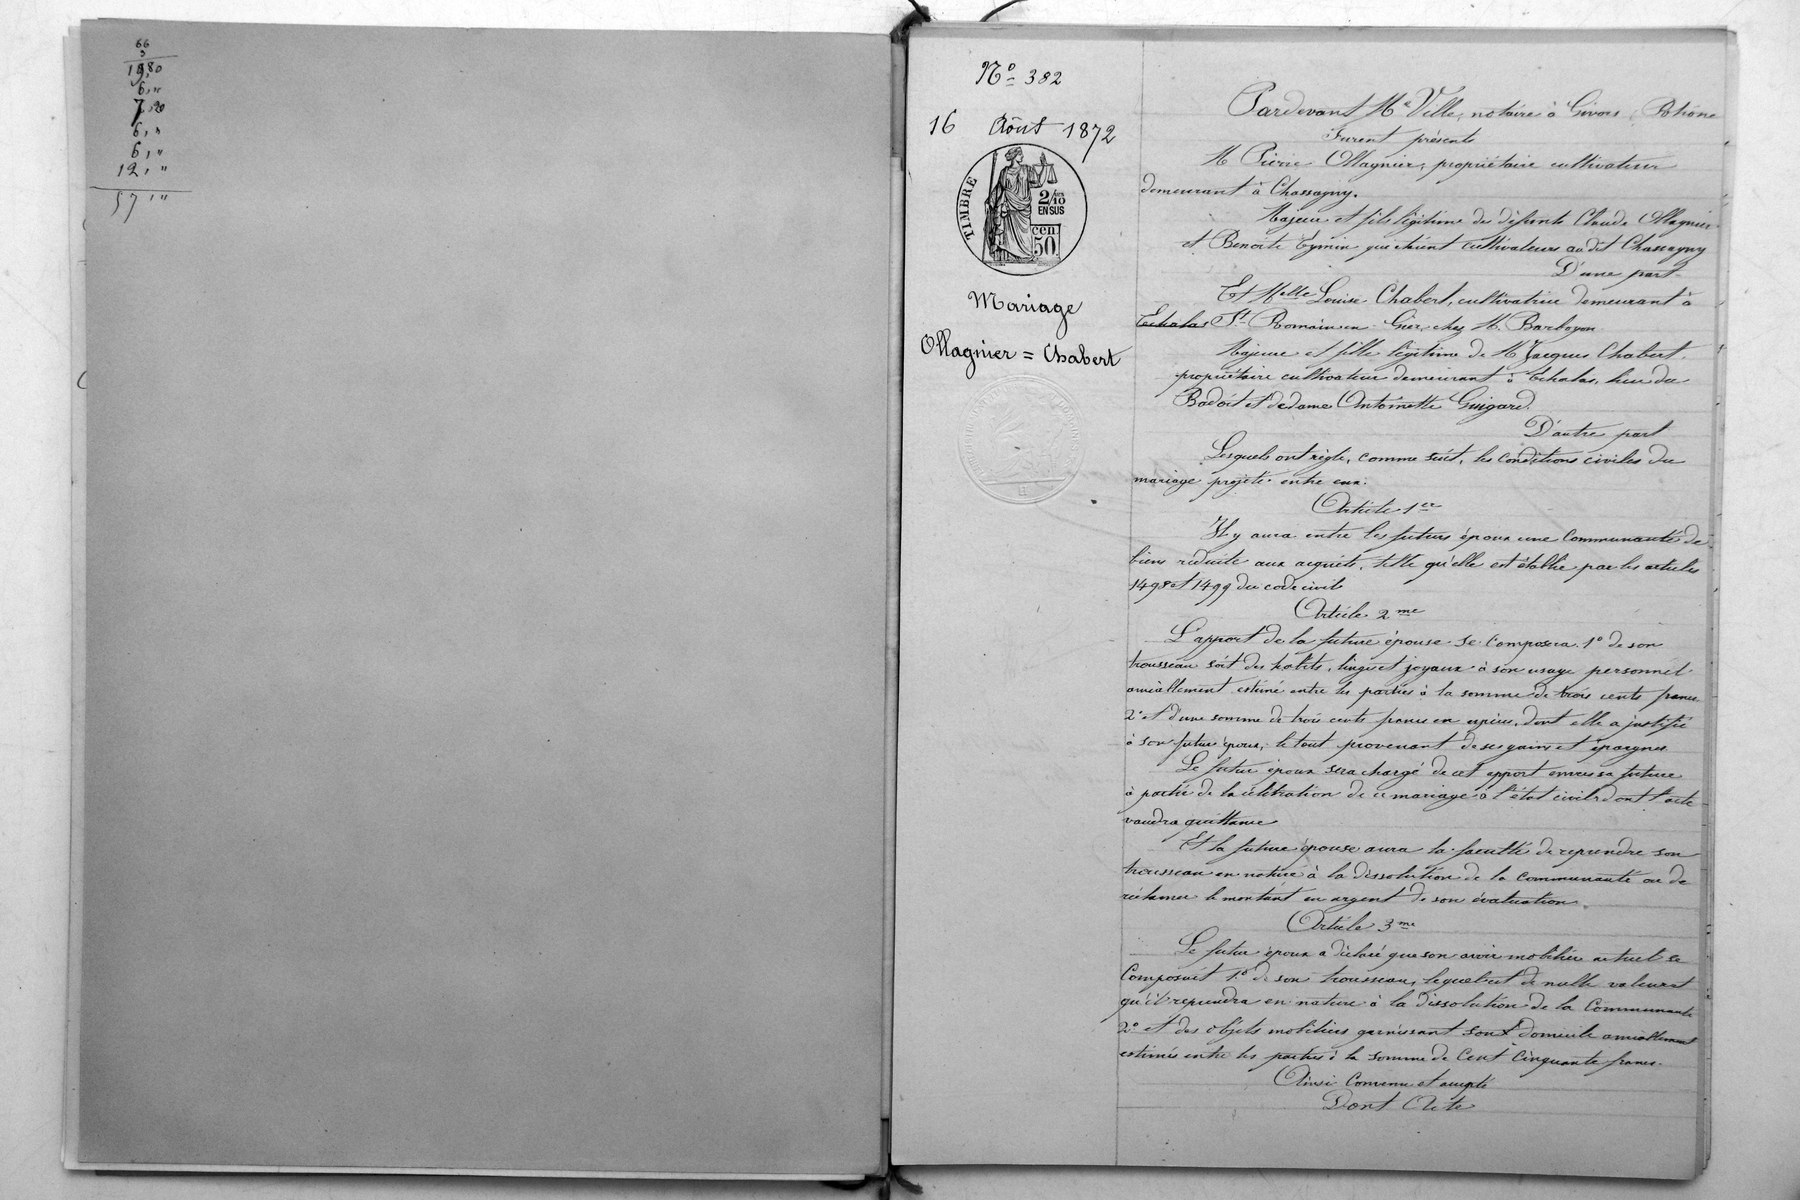 66
3
19,80
6,"
7,20
6,"
6,"
12,"
57 "
No 382
16 Août 1872
TIMBRE
2/10
EN SUS
50 cen
Mariage
Ollagnier = Chabert
Pardevant Me Ville, notaire à Givors, Rhône
Furent présents
M Pierre Ollagnier, propriétaire cultivateur
demeurant à Chassagny.
Majeur et fils légitime des défunts Claude Ollagnier
et Benoite Eymin, qui étaient cultivateurs au dit Chassagny
D'une part
Et Melle Louise Chabert, cultivatrice demeurant à
Echalas St Romain en Gier, chez M. Barboyon
Majeure et fille légitime de M Jacques Chabert,
propriétaire cultivateur demeurant à Echalas, lieu du
Badoit et de dame Antoinette Guigard.
D'autre part
Lesquels ont réglé, comme suit, les conditions civiles du
mariage projeté entre eux.
Article 1er
Il y aura entre les futurs époux une Communauté de
biens réduite aux acquêts, telle qu'elle est établie par les articles
1498 et 1499 du code civil
Article 2me
L'apport de la future épouse se composera 1o de son
trousseau soit des habits, linges et joyaux à son usage personnel
amiablement estimé entre les parties à la somme de trois cents francs
2o et d'une somme de trois cents francs en espèces, dont elle a justifié
à son futur époux, le tout provenant de ses gains et épargnes
Le futur époux sera chargé de cet apport envers sa future
à partir de la célébration de ce mariage à l'état civil dont l'acte
vaudra quittance
Et la future épouse aura la faculté de reprendre son
trousseau en nature à la dissolution de la communauté ou de
réclamer le montant en argent de son évaluation.
Article 3me
Le futur époux a déclaré que son avoir mobilier actuel se
Composait 1o de son trousseau, lequel est de nulle valeur et
qu'il reprendra en nature à la dissolution de la Communauté
2o et des objets mobiliers garnissant son domicile amiablement
estimés entre les parties à la somme de Cent Cinquante francs.
Ainsi Convenu et accepté
Dont Acte